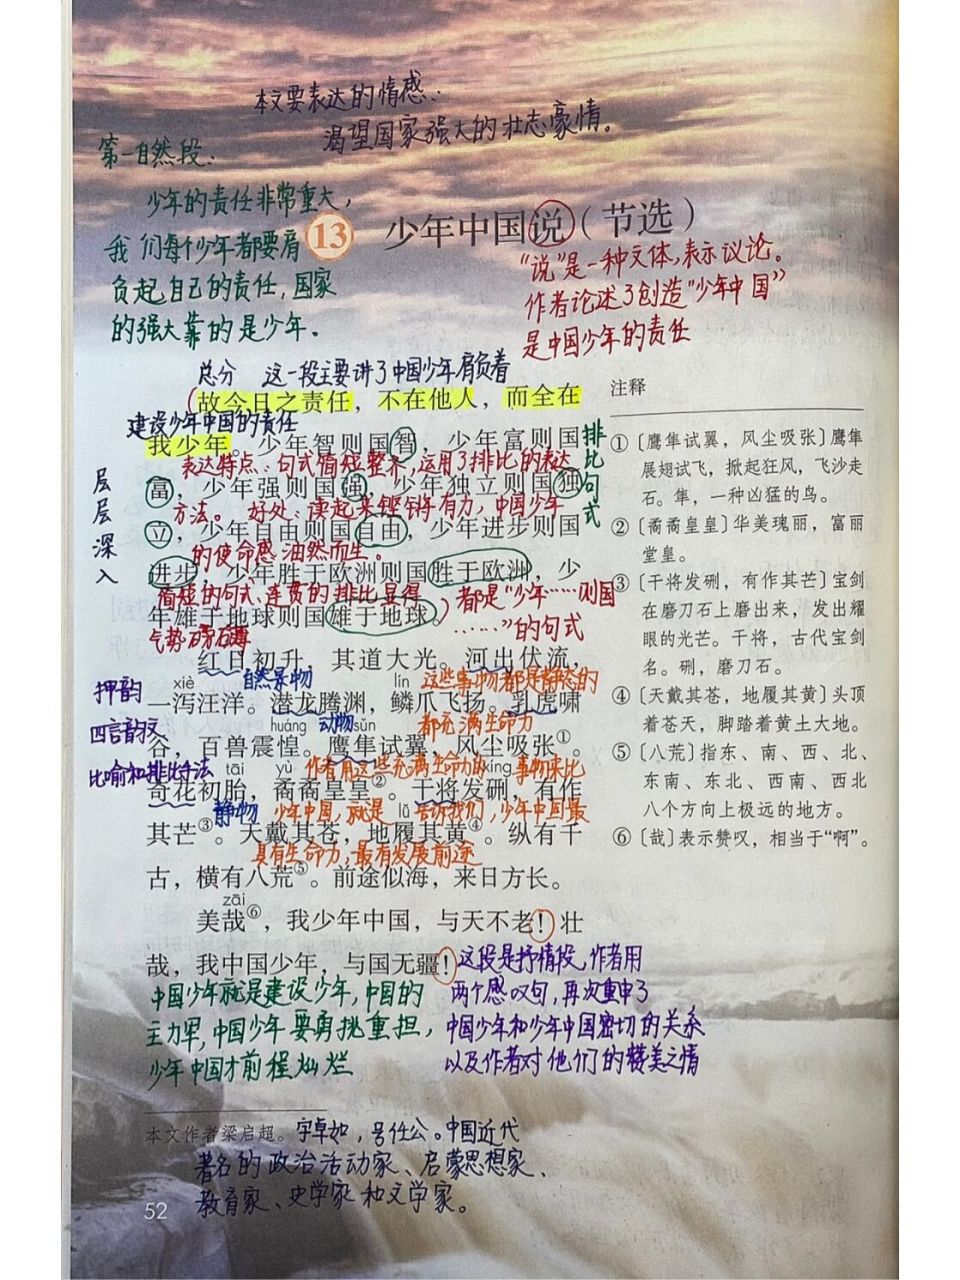 本文要表达的情感:
渴望国家强大的壮志豪情。
第一自然段:
少年的责任非常重大,
我们每个少年都要肩
负起自己的责任,国家
的强大靠的是少年.
13 少年中国说(节选)
“说”是一种文体,表示议论。
作者论述了创造“少年中国”
是中国少年的责任
总分 这一段主要讲了中国少年肩负着
建设少年中国的责任
故今日之责任，不在他人，而全在
我少年。少年智则国智，少年富则国
表达特点:句式简短整齐,运用了排比的表达
富，少年强则国强，少年独立则国独
方法。 好处:读起来铿锵有力,中国少年
立，少年自由则国自由，少年进步则国
的使命感油然而生。
进步，少年胜于欧洲则国胜于欧洲，少
简短的句式、连贯的排比显得
年雄于地球则国雄于地球。
气势磅礴
都是“少年……则国
……”的句式
排比句式
层层深入
红日初升，其道大光。河出伏流，
xiè lín
自然景物
这些事物都是静态的
一泻汪洋。潜龙腾渊，鳞爪飞扬。乳虎啸
huáng sǔn
动物
都充满生命力
谷，百兽震惶。鹰隼试翼，风尘吸张①。
tāi yù xíng
作者用这些充满生命力的事物来比
奇花初胎，矞矞皇皇②。干将发硎，有作
lǚ
静物
少年中国,就是告诉我们,少年中国最
其芒③。天戴其苍，地履其黄④。纵有千
具有生命力,最有发展前途
古，横有八荒⑤。前途似海，来日方长。
押韵
四言韵文
比喻和排比手法
zāi
美哉⑥，我少年中国，与天不老！壮
哉，我中国少年，与国无疆！
这段是抒情段,作者用
两个感叹句,再次重申了
中国少年和少年中国密切的关系
以及作者对他们的赞美之情
中国少年就是建设少年,中国的
主力军,中国少年要勇挑重担,
少年中国才前程灿烂
注释
①〔鹰隼试翼，风尘吸张〕鹰隼
展翅试飞，掀起狂风，飞沙走
石。隼，一种凶猛的鸟。
②〔矞矞皇皇〕华美瑰丽，富丽
堂皇。
③〔干将发硎，有作其芒〕宝剑
在磨刀石上磨出来，发出耀
眼的光芒。干将，古代宝剑
名。硎，磨刀石。
④〔天戴其苍，地履其黄〕头顶
着苍天，脚踏着黄土大地。
⑤〔八荒〕指东、南、西、北、
东南、东北、西南、西北
八个方向上极远的地方。
⑥〔哉〕表示赞叹，相当于“啊”。
本文作者梁启超。字卓如,号任公。中国近代
著名的政治活动家、启蒙思想家、
教育家、史学家和文学家。
52